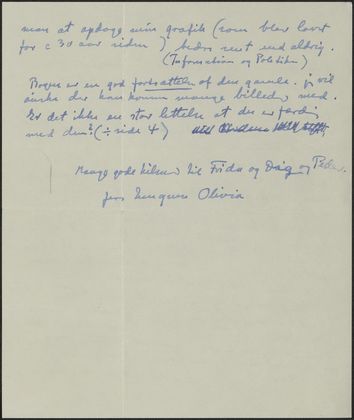 man at opdage min grafik (som blev lavet
for c 30 aar siden) bedre sent end aldrig.
(Information og Politiken)
Bogen er en god fortsættelse af den gamle. jeg vil
ønske der kan komme mange billeder med.
Er det ikke en stor lettelse at du er færdig
med den? (÷ side 4)
Mange gode hilsner til Frida og Dag og Peder.
jens Olivia